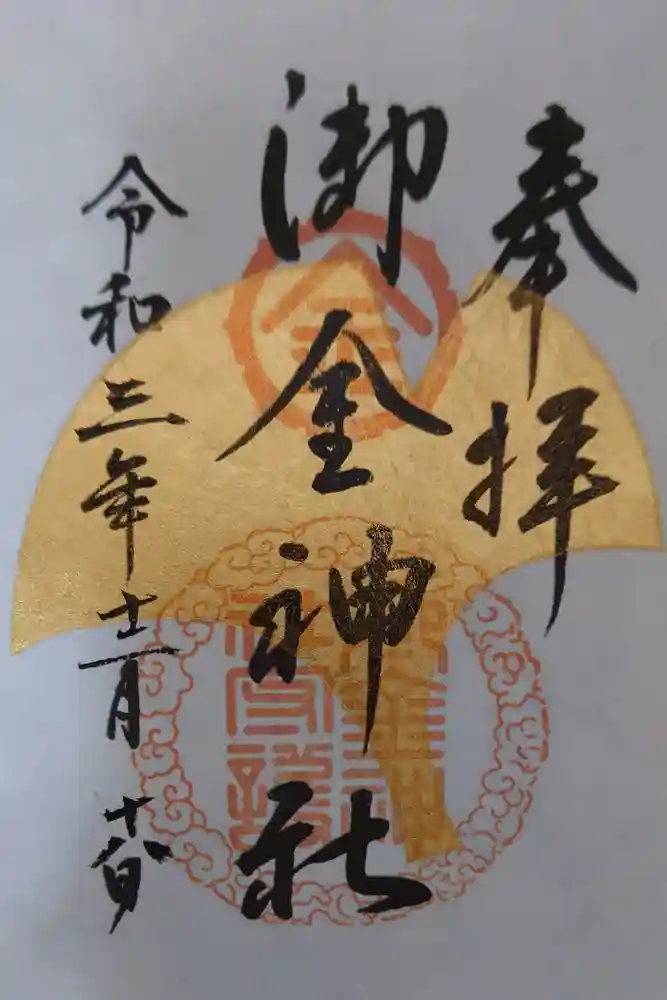 奉拝
御金神社
令和三年十二月十八日